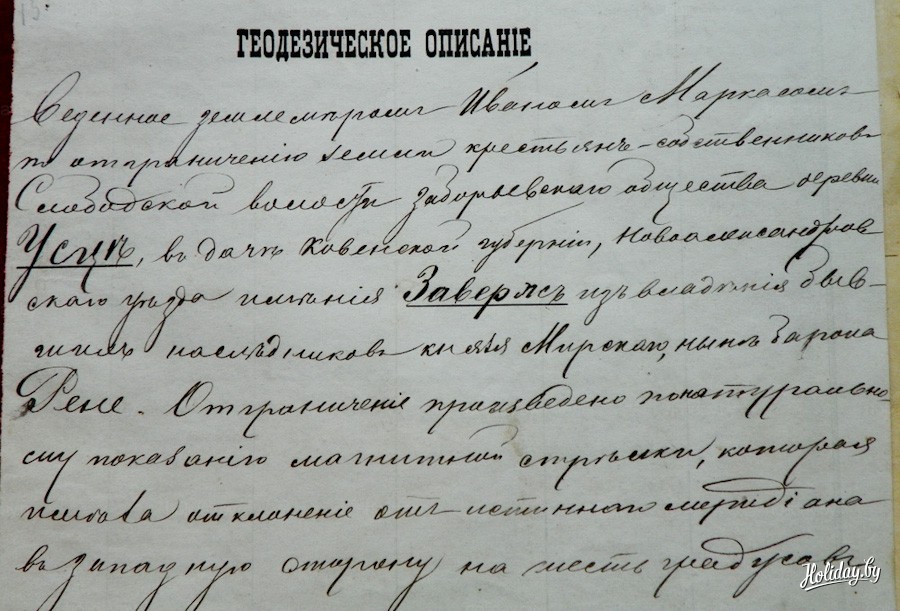 ГЕОДЕЗИЧЕСКОЕ ОПИСАНІЕ
Веденное землемѣромъ Иваномъ Маркасомъ
по отграниченію земли крестьянъ-собственниковъ
Слободской волости Заборьевскаго общества деревни
Усцкъ, въ дачѣ Ковенской губерніи, Новоалександров
скаго уѣзда имѣнія Заверясъ изъ владѣнія быв-
шихъ наслѣдниковъ князя Мирскаго, нынѣ барона
Рене. Отграниченіе произведено по натурально-
му показанію магнитной стрѣлки, которая
имѣла отклоненіе отъ истиннаго меридіана
въ западную сторону на шесть градусовъ
Holiday.by